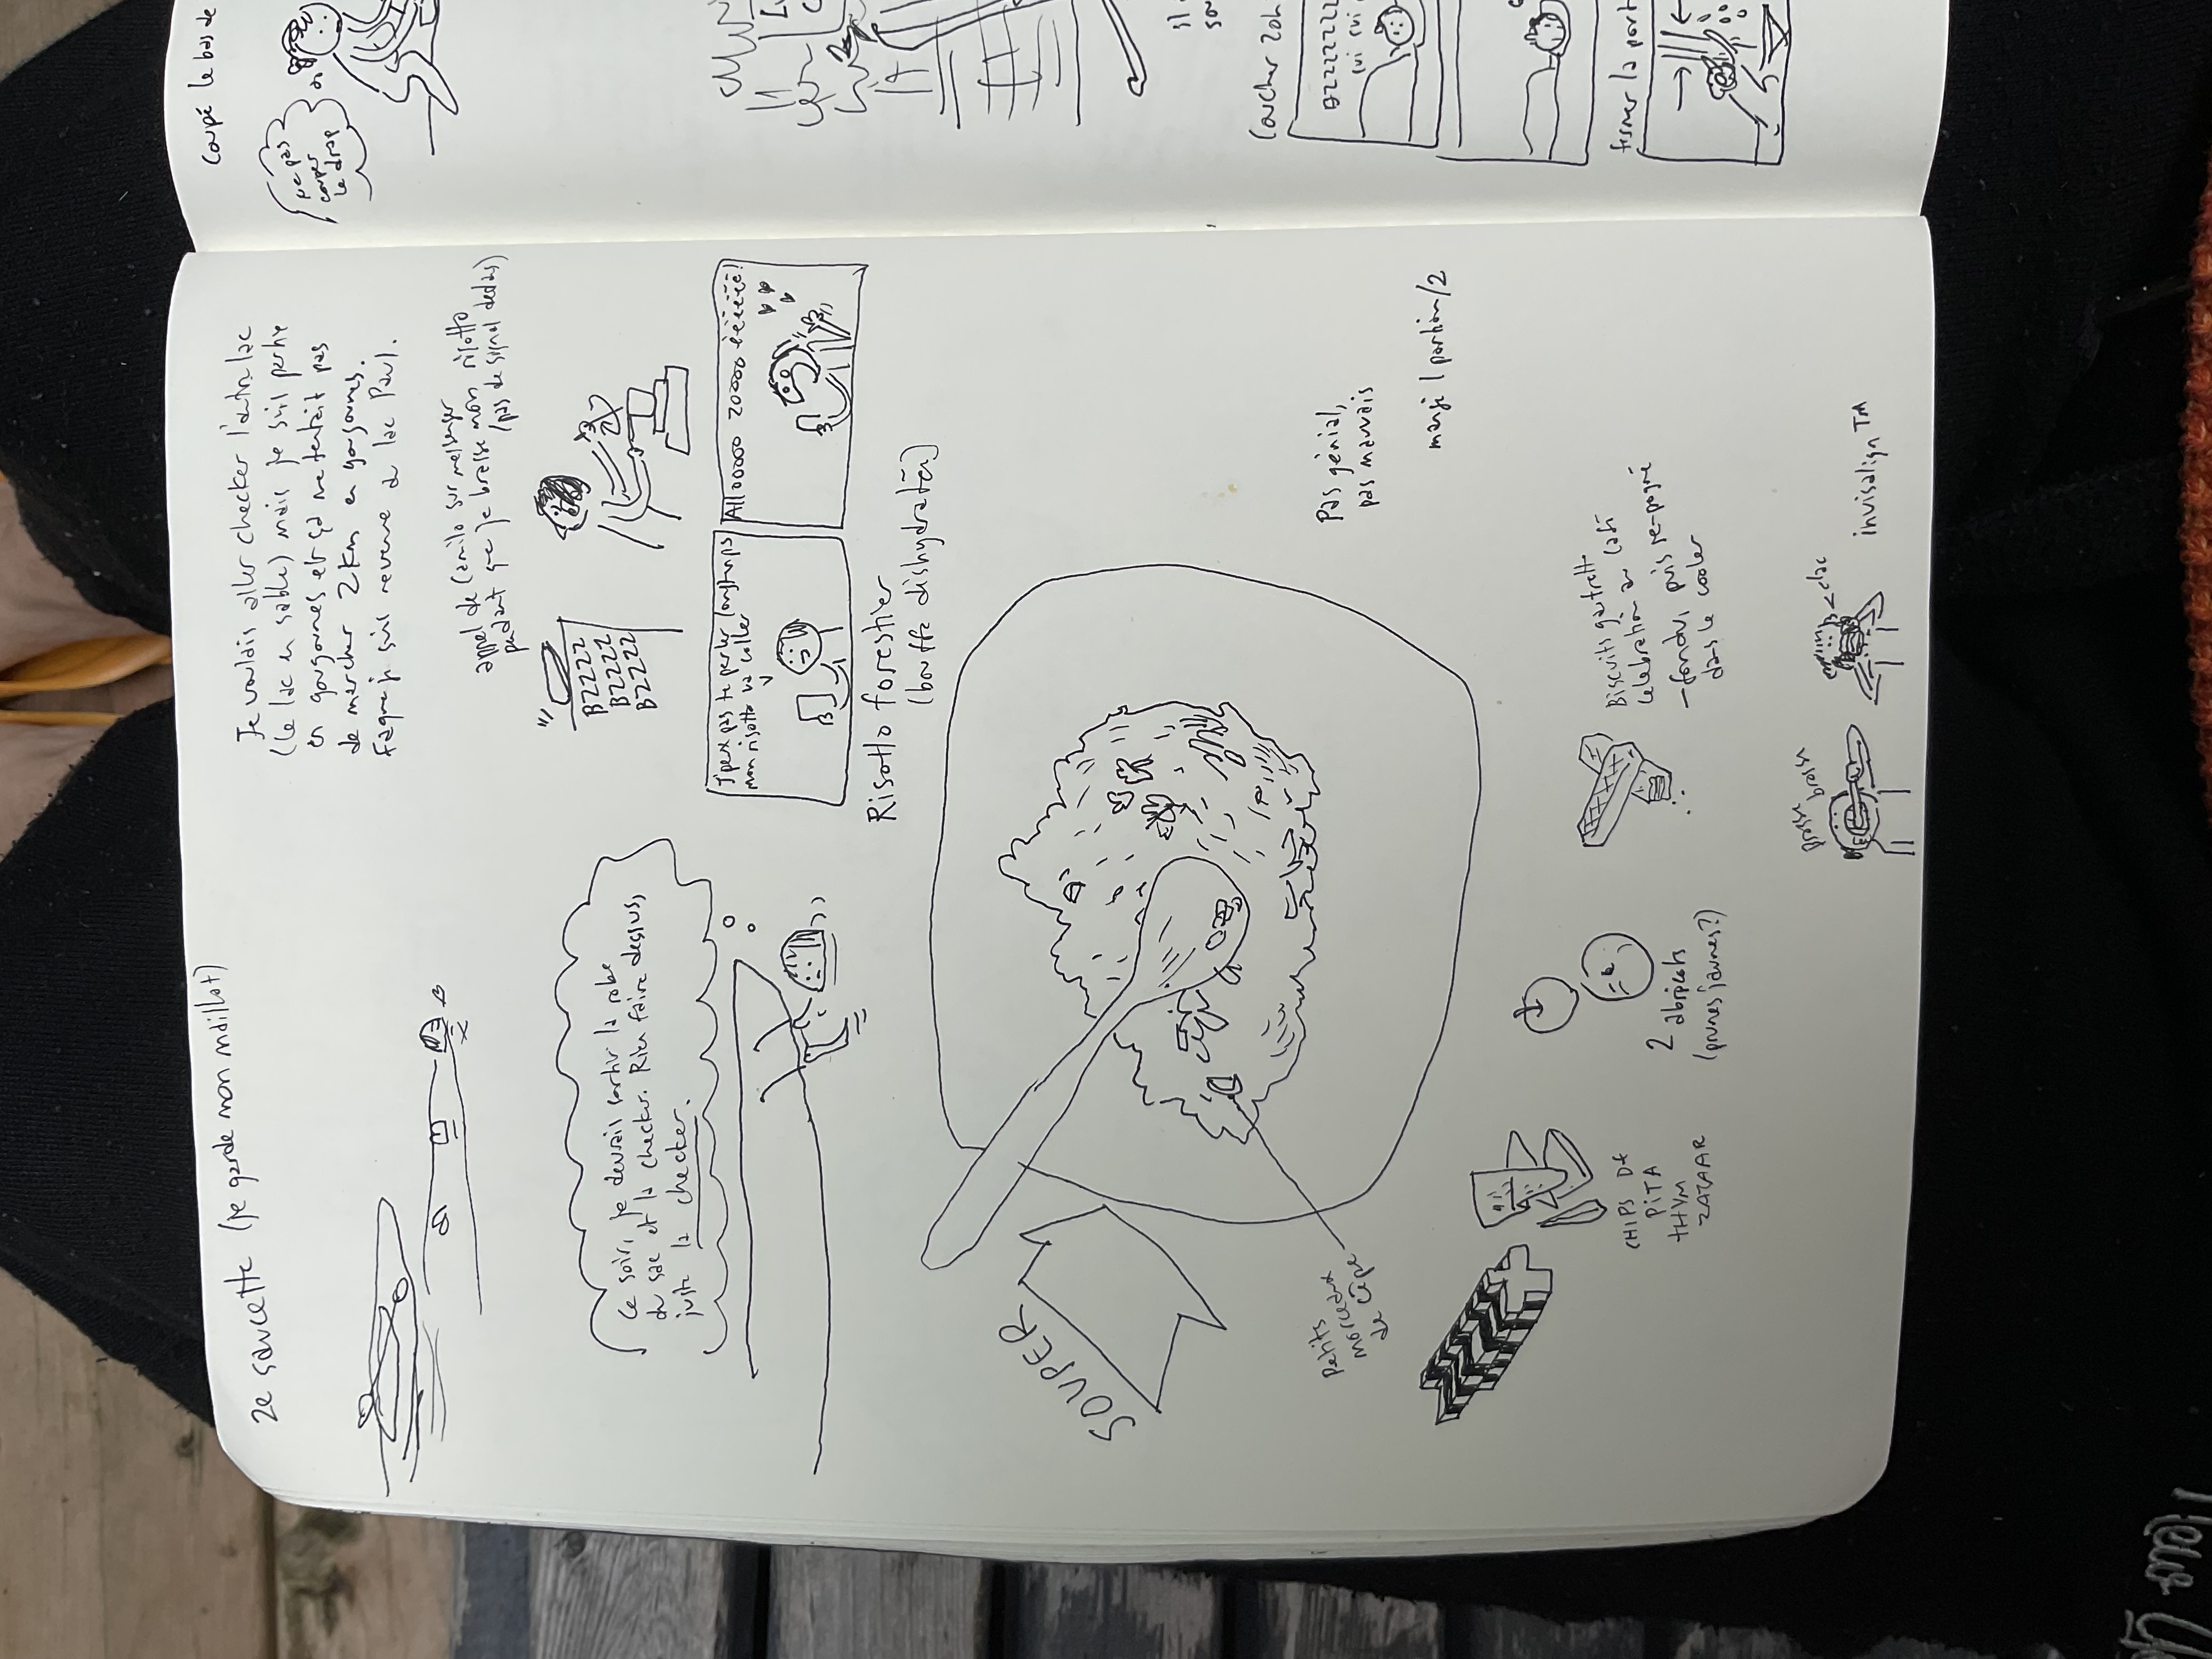 2e saucette (je garde mon maillot)
Je voulais aller checker l'autre lac
(le lac en sable) mais je suis partie
en gougounes et ça me tentait pas
de marcher 2 Km en gougounes.
Faque je suis revenue au lac Paul.
appel de Camilo sur messenger
pendant que je brasse mon risotto
(pas de signal dedans)
BZZZZ
BZZZZ
BZZZZ
Ce soir, je devrais sortir la robe
du sac et la checker. Rien faire dessus,
juste la checker.
J'peux pas te parler longtemps
mon risotto va coller
Allooooo zooooo
Risotto forestier
(bouffe dishydratée)
SOUPER
Petits
morceaux
de cèpe
Pas génial,
pas mauvais
mangé 1 portion/2
CHIPS DE
PITA
THYM
ZATAAR
2 abricots
(prunes jaunes?)
Biscuits gaufrette
célébration au café
- fondus puis re-pogné
dans le cooler
brosse brosse
clac
invisalign TM
Coupé le bas de
ne pas
couper
le drap
il
Coucher 20h
BZZZZZZZ
cui cui
fermer la port